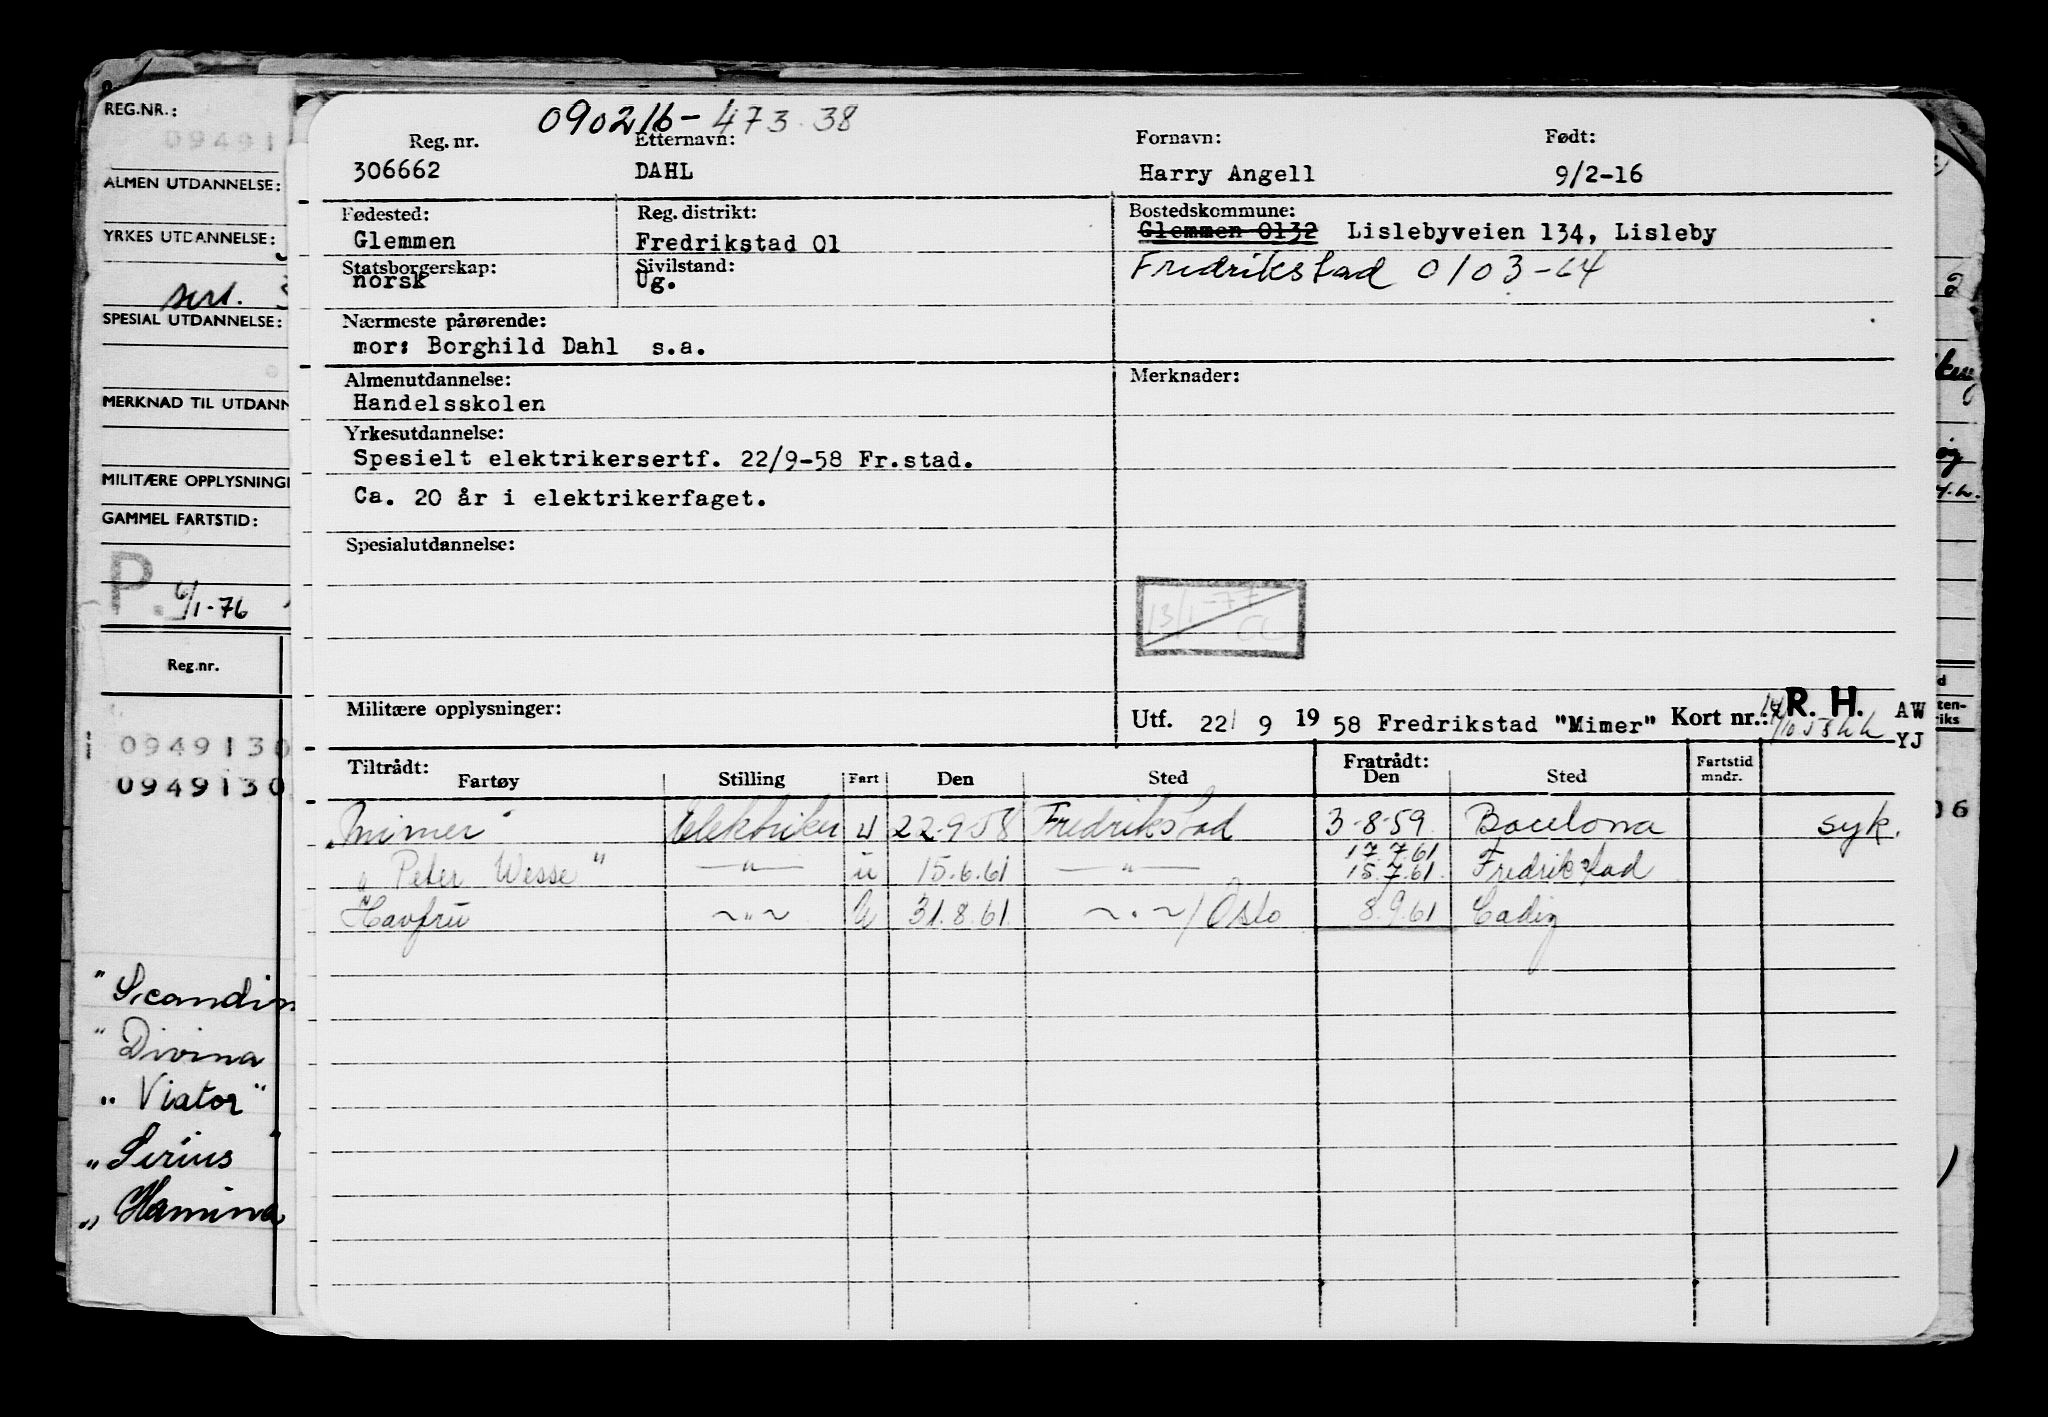 REG.NR.:
09491
ALMEN UTDANNELSE:
YRKES UTDANNELSE:
sert.
SPESIAL UTDANNELSE:
MERKNAD TIL UTDANN
MILITÆRE OPPLYSNINGE
GAMMEL FARTSTID:
P. 6/1-76
Reg.nr.
0949130
0949130
"Scandin
"Divina
"Viator"
"Sirius"
"Hamina
090216-473.38
Reg. nr. Etternavn: Fornavn: Født:
306662 DAHL Harry Angell 9/2-16
Fødested: Reg. distrikt: Bostedskommune:
Glemmen Fredrikstad 01 Glemmen 0132 Lislebyveien 134, Lisleby
Statsborgerskap: Sivilstand: Fredrikstad 0103-64
norsk Ug.
Nærmeste pårørende:
mor: Borghild Dahl s.a.
Almenutdannelse: Merknader:
Handelsskolen
Yrkesutdannelse:
Spesielt elektrikersertf. 22/9-58 Fr.stad.
Ca. 20 år i elektrikerfaget.
Spesialutdannelse:
13/1-77
Militære opplysninger: Utf. 22/ 9 1958 Fredrikstad "Mimer" Kort nr.: R. H. AW
YJ
Tiltrådt: Fratrådt: Fartstid
Fartøy Stilling Fart Den Sted Den Sted mndr.
"Mimer" Elektriker u 22-9-58 Fredrikstad 3-8-59 Bacelona syk.
17.7.61
"Peter Wesse" —"— u 15.6.61 —"— 15.7.61 Fredrikstad
Havfru ~"~ u 31.8.61 ~"~/Oslo 8.9.61 Cadiz